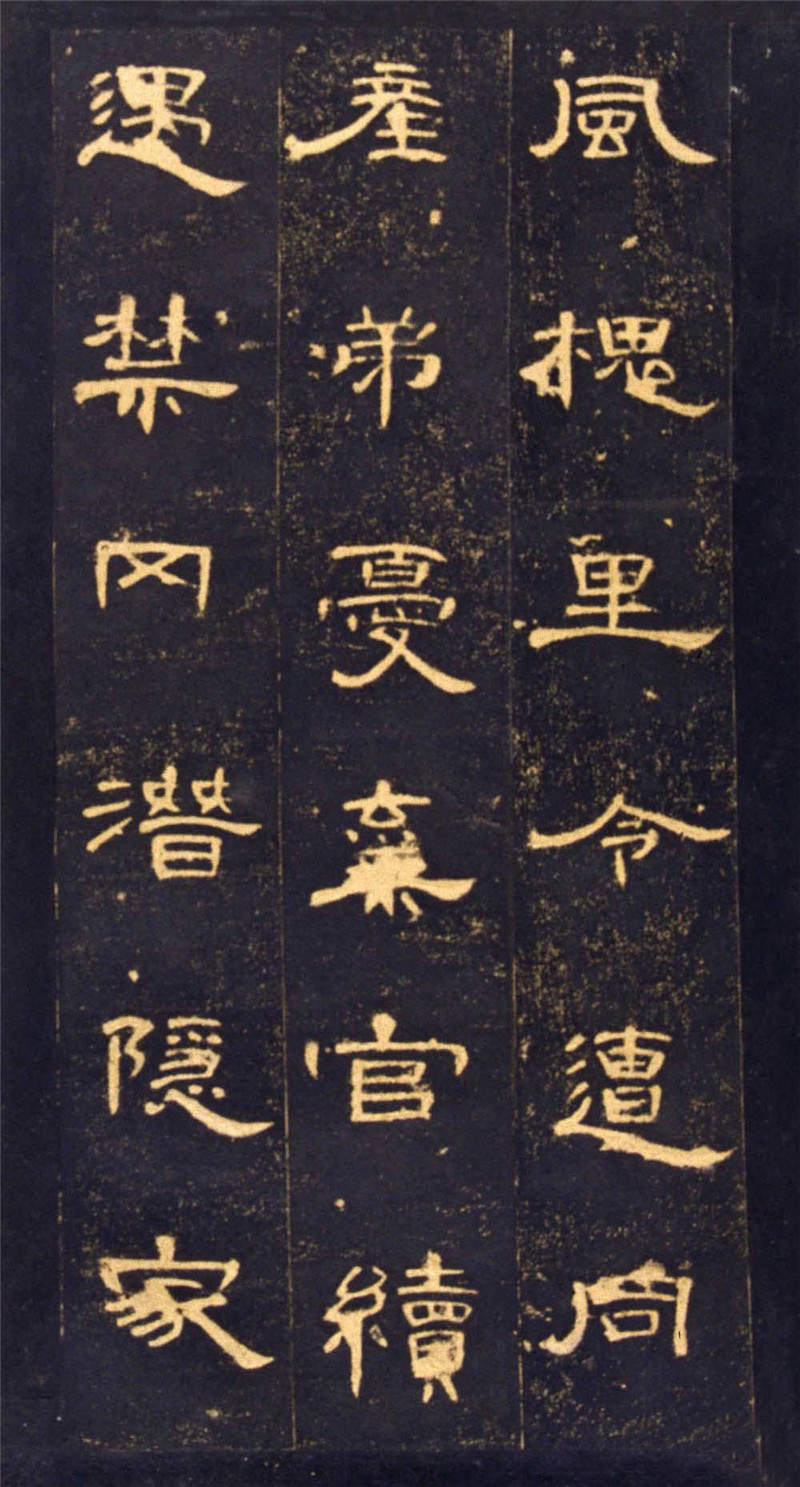 風槐里令遭同
產弟憂棄官續
遇禁冈潛隱家